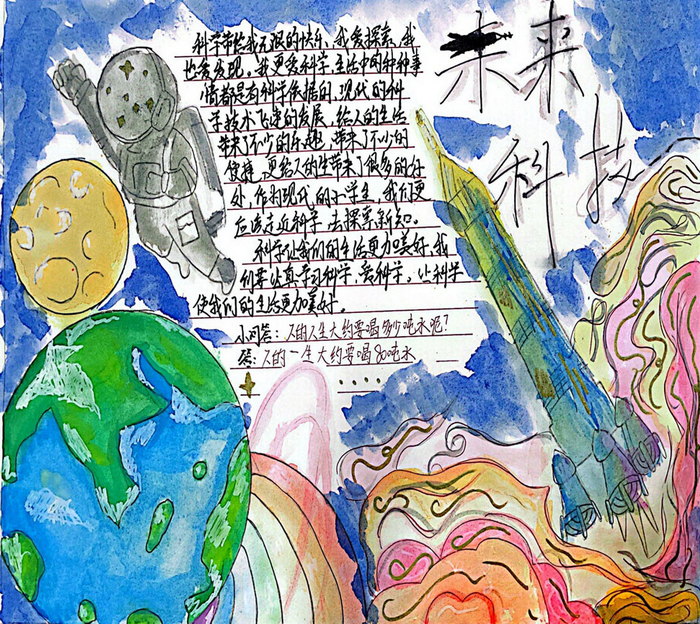 未来
科技
科学带给我无限的快乐、我爱探索、我
也爱发现。我更爱科学、生活中的种种事
情都是有科学依据的，现代的科
学技术飞速的发展，给人的生活
带来了不少的乐趣，带来了不少的
便捷、更给人的生带来了很多的好
处，作为现代的小学生，我们更
应该走近科学去探索新知。
科学让我们的生活更加美好，我
们要认真学习科学，爱科学。让科学
使我们的生活更加美好。
小问答：人的人生大约要喝多少吨水呢？
答：人的一生大约要喝80吨水